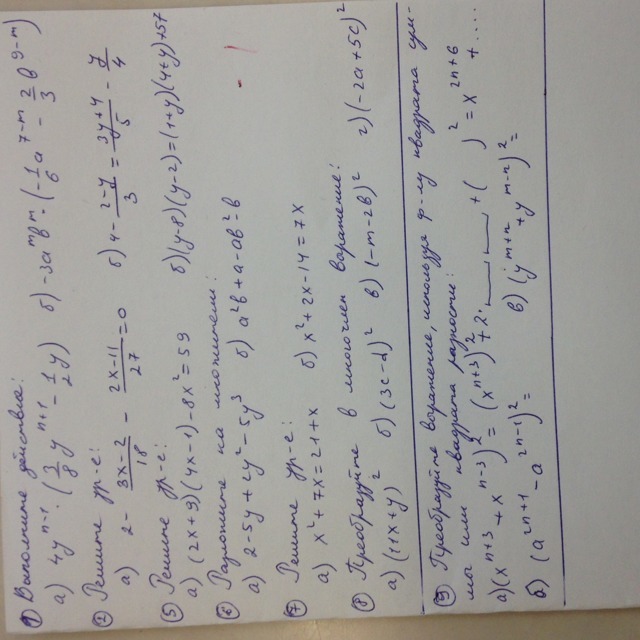 ① Выполните действие:
а) 4y^{n-1} · (3/8 y^{n+1} - 1/2 y) б) -3a^m b^m · (-1/6 a^{7-m} - 2/3 b^{9-m})
② Решите ур-е:
а) 2 - (3x-2)/18 - (2x-11)/27 = 0 б) 4 - (2-y)/3 = (3y+4)/5 - 7/4
⑤ Решите ур-е:
а) (2x+9)(4x-1)-8x²=59 б) (y-8)(y-2)=(1+y)(4+y)+57
⑥ Разложите на множители:
а) 2-5y+2y²-5y³ б) a²b+a-ab²-b
⑦ Решите ур-е:
а) x²+7x=21+x б) x²+2x-14=7x
⑧ Преобразуйте в многочлен выражение:
а) (1+x+y)² б) (3c-d)² в) (-m-2b)² г) (-2a+5c)²
⑨ Преобразуйте выражение, используя ф-лу квадрата сум-
мы или квадрата разности:
а) (x^{n+3} + x^{n-3})² = (x^{n+3})² + 2·___·___ + ( )² = x^{2n+6} + ....
б) (a^{2n+1} - a^{2n-1})² = в) (y^{m+n} + y^{m-n})² =